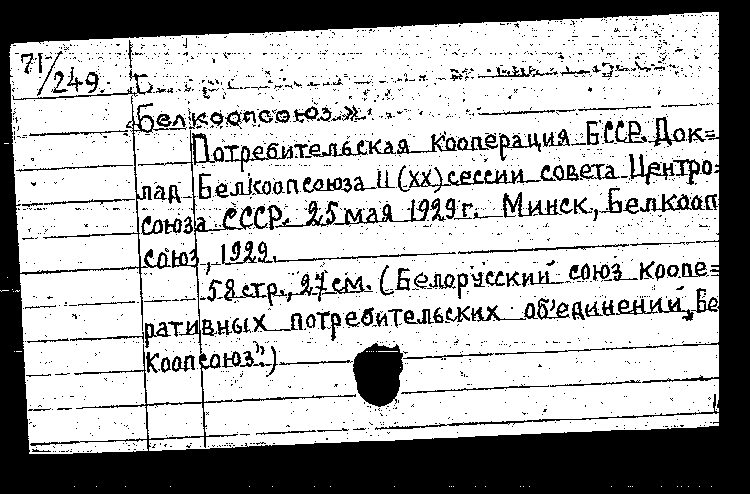 71/249.
«Белкоопсоюз».
Потребительская кооперация БССР. Док=
лад Белкоопсоюза II (XX) сессии совета Центро=
союза СССР. 25 мая 1929 г. Минск, Белкооп
союз, 1929.
58 стр., 27 см. (Белорусский союз коопе=
ративных потребительских об'единений „Бе
Коопсоюз".)